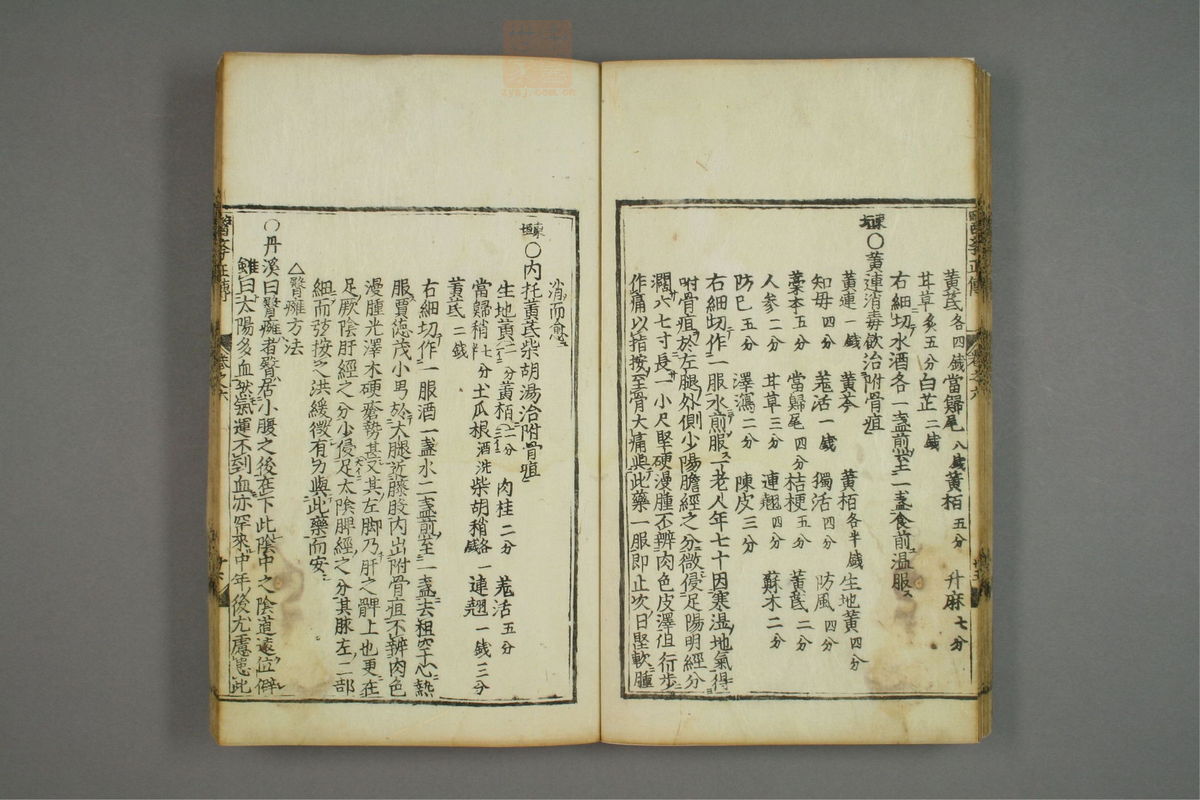 黃芪各四錢當歸尾八錢黃栢五分升麻七分
甘草炙五分白芷二錢
右細切水酒各一盞煎至一盞食前溫服
東垣○黃連消毒飲治附骨疽
黃連一錢黃芩黃栢各半錢生地黃四分
知毋四分羗活一錢獨活四分防風四分
藁本五分當歸尾四分桔梗五分黃芪二分
人參二分甘草三分連翹四分蘇木二分
防已五分澤瀉二分陳皮三分
右細切作一服水煎服一老人年七十因寒濕地氣得
附骨疽於左腿外側少陽膽經之分微侵足陽明經分
濶六七寸長一小尺堅硬漫腫不辨肉色皮澤但行步
作痛以指按至骨大痛與此藥一服即止次日堅軟腫
消而愈
東垣○內托黃芪柴胡湯治附骨疽
生地黃一分黃栢二分肉桂二分羗活五分
當歸稍七分半土瓜根酒洗柴胡稍各一錢連翹一錢三分
黃芪二錢
右細切作一服酒一盞水二盞煎至一盞去柤空心熱
服賈德茂小男於大腿近膝股內出附骨疽不辨肉色
漫腫光澤木硬瘡勢甚大其左脚乃肝之髀上也更在
足厥陰肝經之分少侵足太陰脾經之分其脉左三部
細而弦按之洪緩微有力與此藥而安
△臀癰方法
○丹溪曰臀癰者臀居小腹之後在下此陰中之陰道遠位僻
雖曰太陽多血然氣運不到血亦罕來中年後尤慮患此
醫學正傳
卷之六
廿六
zysj.com.cn